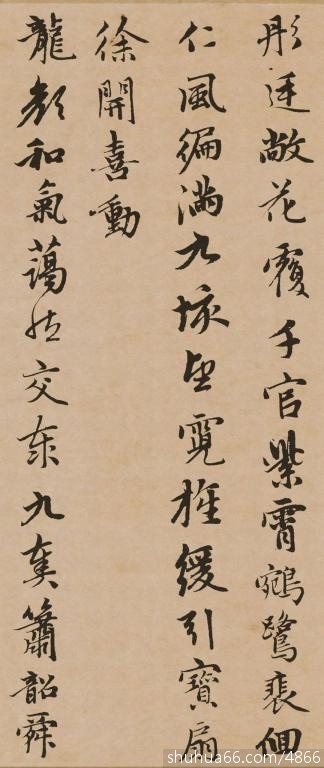 彤廷敞花覆千官紫霄鵷鷺裴佪
仁風徧滿九垓望霓旌緩引寶扇
徐開喜動
龍顏和氣藹然交泰九奏簫韶舜
shuhua66.com/4866